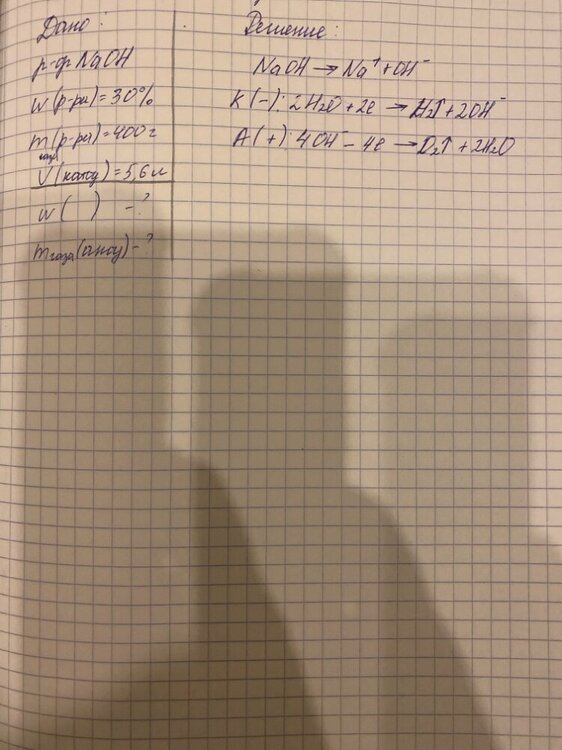 Дано:
р-р NaOH
w(р-ра)=30%
m(р-ра)=400г
Vгаза(катод)=5,6л
w( ) -?
mгаза(анод)-?
Решение:
NaOH→Na⁺+OH⁻
K(-): 2H₂O+2e → H₂↑+2OH⁻
A(+): 4OH⁻-4e → O₂↑+2H₂O